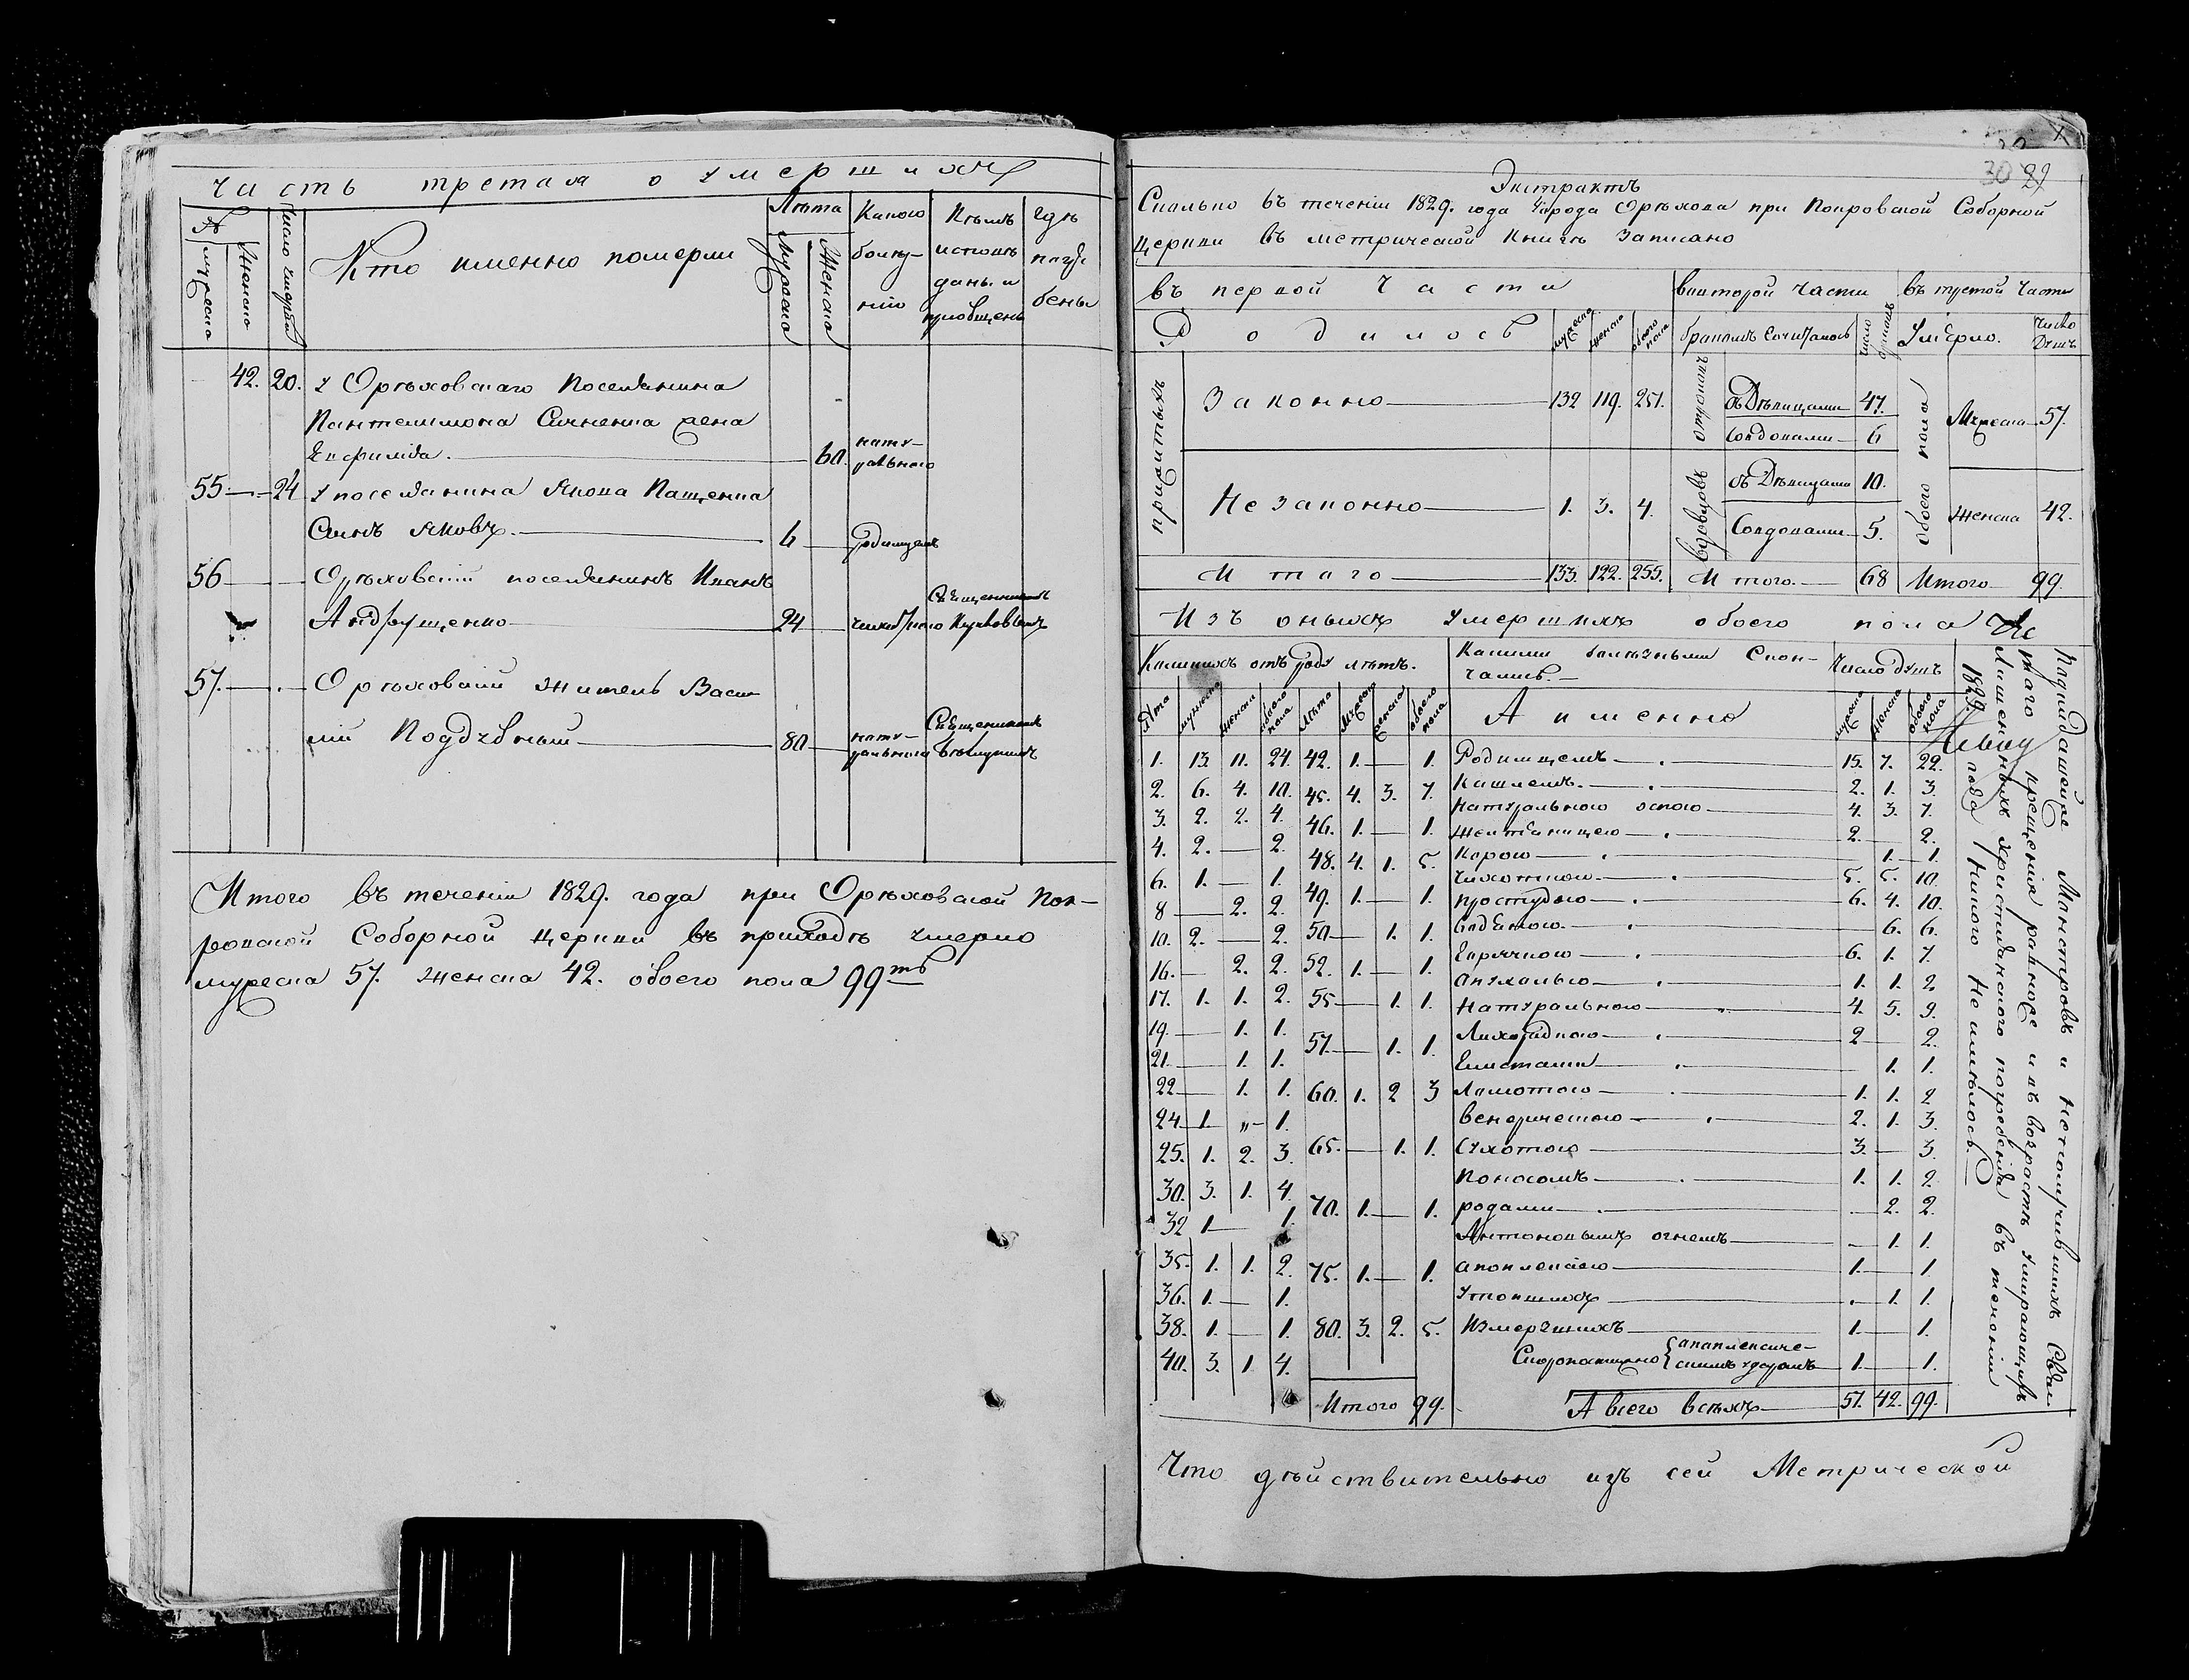 Часть третая о умершихъ
№ Число умерш Кто именно померли Лѣта Какою Кѣмъ Гдѣ
болѣз- исповѣ погре
нію даны и бены
приобщены
мужеска женска мужеска женска
42. 20. у Орѣховскаго Поселянина
Пантелимона Сичненка жена
Евфимія. 60. нату-
ральною
55 24 у поселянина Якова Пащенка
Сынъ Яковъ. 6 Родимцемъ
56 Орѣховскій поселянинъ Иванъ
Андрущенко 24 чихоткою Священникомъ
57. Орѣховскій житель Васи
лій Поддубный 80 нату-
ральною Священникомъ
Итого въ теченіи 1829. года при Орѣховской Пок-
ровской Соборной церкви въ приходѣ умерло
мужеска 57. женска 42. обоего пола 99ть
30 29
Экстрактъ
Сколько въ теченіи 1829. года города Орѣхова при Покровской Соборной
церкви въ метрической книгѣ Записано
въ первой Части въ второй части въ третой Части
Родилось мужеска женска обоего пола браковъ Сочиталось число браковъ Умерло. Число Душъ
прижитыхъ Законно 132 119. 251. отроковъ съ Дѣвицами 47. обоего пола Мужеска 57.
Со вдовами 6
Не законно 1. 3. 4. вдовцовъ съ Дѣвицами 10. Женска 42.
Со вдовами 5.
Итого 133. 122. 255. Итого. 68 Итого 99.
Изъ оныхъ умершихъ обоего пола
Коликихъ отъ роду лѣтъ. Какими болѣзньми Скон-
чались. Число душъ
Лѣта мужеска женска обоего пола Лѣта мужеска женска обоего пола А именно мужеска женска обоего пола
1. 13. 11. 24. 42. 1. — 1. Родимцемъ 15. 7. 22.
2. 6. 4. 10. 45. 4. 3. 7. Кашлемъ. 2. 1. 3.
3. 2. 2. 4. 46. 1. — 1. Натуральною оспою 4. 3. 7.
4. 2. — 2. 48. 4. 1. 5. Желтяницею 2. — 2.
6. 1. — 1. 49. 1. — 1. Корою 1. 1.
8 — 2. 2. 50 — 1. 1. Чихоткою. 5. 5. 10.
10. 2. — 2. 52. 1. — 1. простудою 6. 4. 10.
16. — 2. 2. 55 — 1. 1. водяною. 6. 6.
17. 1. 1. 2. 57 — 1. 1. Горячкою 6. 1. 7.
19. — 1. 1. 60. 1. 2 3 опухолью 1. 1. 2
21. — 1. 1. 65. — 1. 1. Натуральною 4. 5. 9.
22 — 1. 1. 70. 1. — 1. Лихорадкою 2 — 2.
24. 1 „ 1. 75. 1. — 1. Глистами 1. 1.
25. 1. 2. 3. 80. 3. 2. 5. Ломотою 1. 1. 2
30. 3. 1. 4. венерическою 2. 1. 3.
32 1 — 1. Сухотою 3. — 3.
35. 1. 1. 2. Поносомъ 1. 1. 2.
36. 1. — 1. родами 2. 2.
38. 1. — 1. Антоновымъ огнемъ — 1. 1.
40. 3. 1. 4. апоплексіею 1. — 1.
Утопшихъ 1. 1.
Измерзшихъ 1. — 1.
Скоропостижно апоплексиче-
скимъ ударомъ 1. — 1.
Итого 99. А всего всѣхъ 57. 42. 99.
Надлѣдашейце Монстровъ и
крещенія ранное и въ возрастѣ умирающихъ
Лишенныхъ христіанского погребенія въ теченіи
1829. года Никого Не имѣлось.
Что дѣйствительно изъ сей Метрической